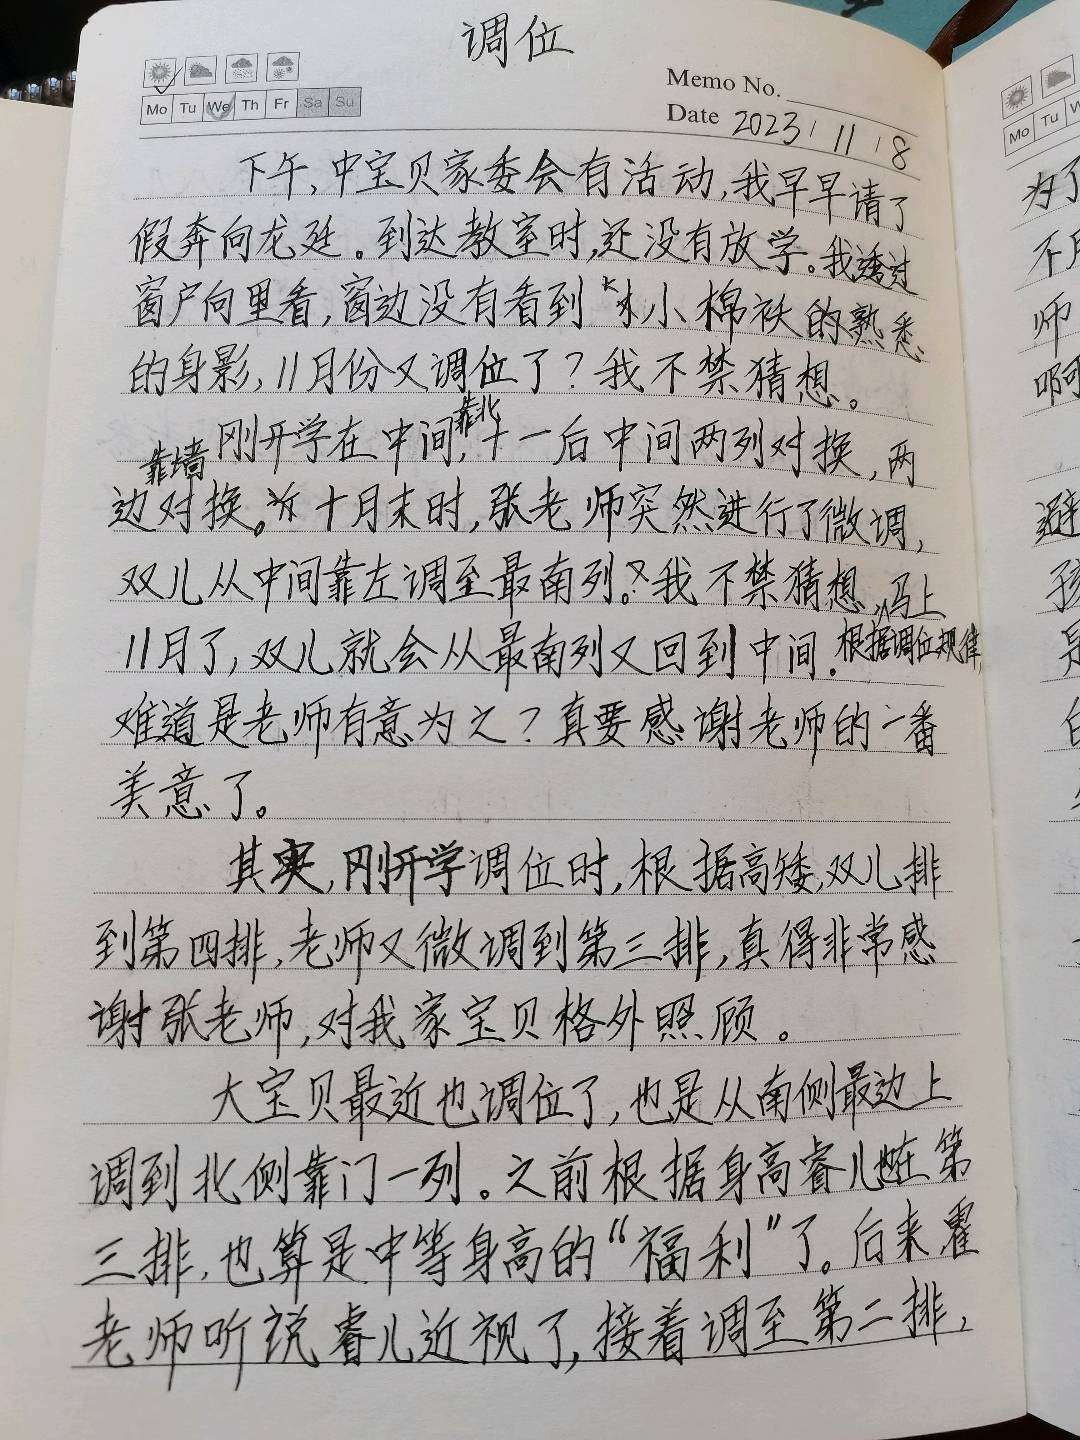 调位
Memo No.
Mo Tu We Th Fr Sa Su
Date 2023/11/8
下午,中宝贝家委会有活动,我早早请了
假奔向龙廷。到达教室时,还没有放学。我透过
窗户向里看,窗边没有看到小棉袄的熟悉
的身影,11月份又调位了?我不禁猜想。
刚开学在中间靠北,十一后中间两列对换,两
边靠墙对换。十月末时,张老师突然进行了微调,
双儿从中间靠左调至最南列。我不禁猜想,马上
11月了,双儿就会从最南列又回到中间.根据调位规律,
难道是老师有意为之?真要感谢老师的一番
美意了。
其实,刚开学调位时,根据高矮,双儿排
到第四排,老师又微调到第三排,真得非常感
谢张老师,对我家宝贝格外照顾。
大宝贝最近也调位了,也是从南侧最边上
调到北侧靠门一列。之前根据身高睿儿也在第
三排,也算是中等身高的“福利”了。后来霍
老师听说睿儿近视了,接着调至第二排,
Mo Tu W
为了
不
师
啊
避
孩
是